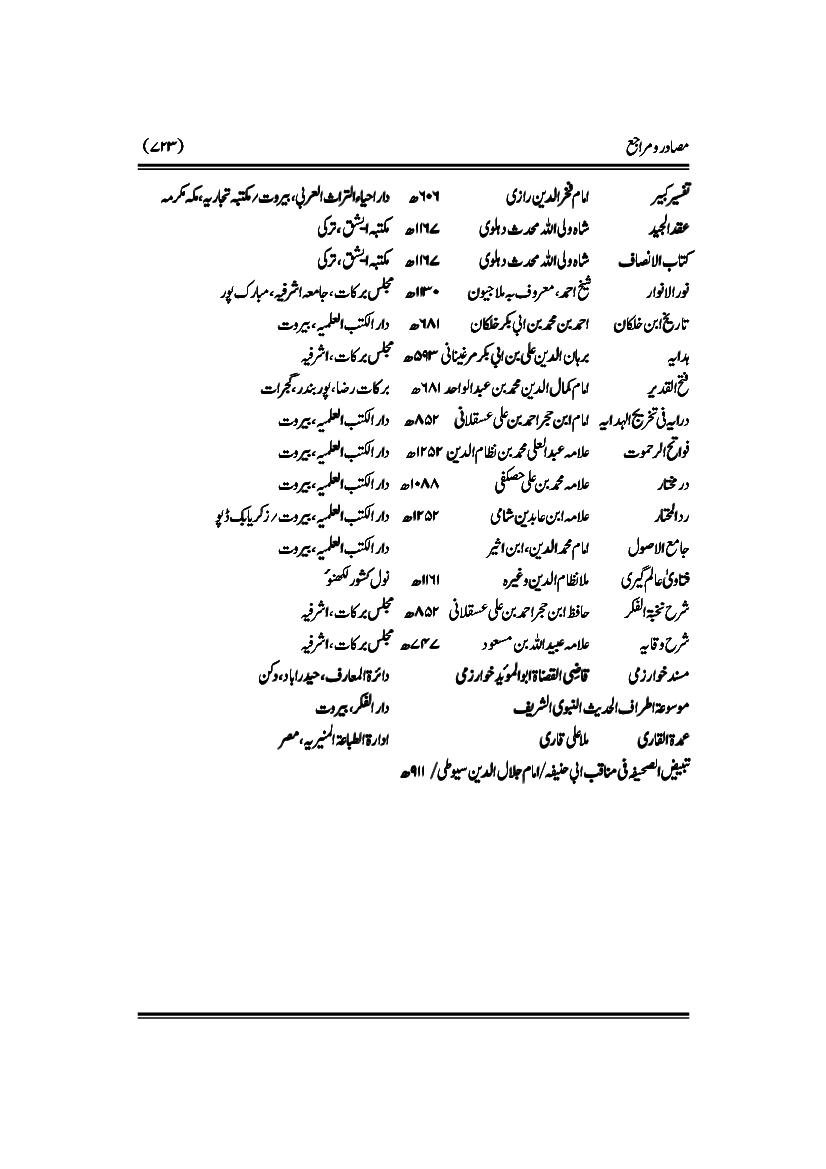 مصادر و مراجع (۷۲۳)
تفسیر کبیر امام فخر الدین رازی ۶۰۶ھ دار احیاء التراث العربی، بیروت/ مکتبہ تجاریہ، مکہ مکرمہ
عقد الجید شاہ ولی اللہ محدث دہلوی ۱۱۶۷ھ مکتبہ ایشق، ترکی
کتاب الانصاف شاہ ولی اللہ محدث دہلوی ۱۱۶۷ھ مکتبہ ایشق، ترکی
نور الانوار شیخ احمد، معروف بہ ملا جیون ۱۱۳۰ھ مجلس برکات، جامعہ اشرفیہ، مبارک پور
تاریخ ابن خلکان احمد بن محمد بن ابی بکر خلکان ۶۸۱ھ دار الکتب العلمیہ، بیروت
ہدایہ برہان الدین علی بن ابی بکر مرغینانی ۵۹۳ھ مجلس برکات، اشرفیہ
فتح القدیر امام کمال الدین محمد بن عبد الواحد ۶۸۱ھ برکات رضا، پور بندر، گجرات
درایہ فی تخریج الہدایہ امام ابن حجر احمد بن علی عسقلانی ۸۵۲ھ دار الکتب العلمیہ، بیروت
فواتح الرحموت علامہ عبد العلی محمد بن نظام الدین ۱۲۵۲ھ دار الکتب العلمیہ، بیروت
در مختار علامہ محمد بن علی حصکفی ۱۰۸۸ھ دار الکتب العلمیہ، بیروت
رد المحتار علامہ ابن عابدین شامی ۱۲۵۲ھ دار الکتب العلمیہ، بیروت/ زکریا بک ڈپو
جامع الاصول امام محمد الدین، ابن اثیر دار الکتب العلمیہ، بیروت
فتاویٰ عالم گیری ملا نظام الدین وغیرہ ۱۱۶۱ھ نول کشور لکھنؤ
شرح نخبۃ الفکر حافظ ابن حجر احمد بن علی عسقلانی ۸۵۲ھ مجلس برکات، اشرفیہ
شرح وقایہ علامہ عبید اللہ بن مسعود ۷۴۷ھ مجلس برکات، اشرفیہ
مسند خوارزمی قاضی القضاۃ ابو الموید خوارزمی دائرۃ المعارف، حیدر اباد، دکن
موسوعۃ اطراف الحدیث النبوی الشریف دار الفکر، بیروت
عمدۃ القاری ملا علی قاری ادارۃ الطباعۃ المنیریہ، مصر
تبییض الصحیفہ فی مناقب ابی حنیفہ/ امام جلال الدین سیوطی/ ۹۱۱ھ